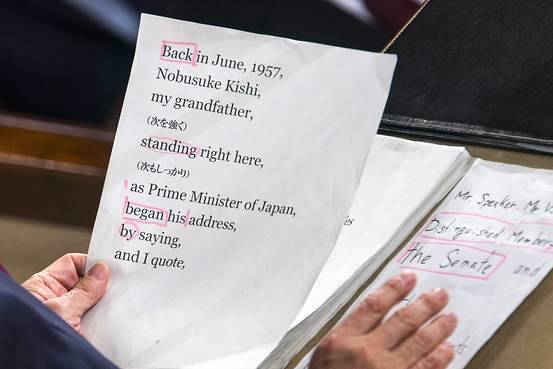 Back in June, 1957,
Nobusuke Kishi,
my grandfather,
(次を強く)
standing right here,
(次もしっかり)
as Prime Minister of Japan,
began his address,
by saying,
and I quote,
Mr. Speaker, Mr. V
Distinguished Membe
the Senate and